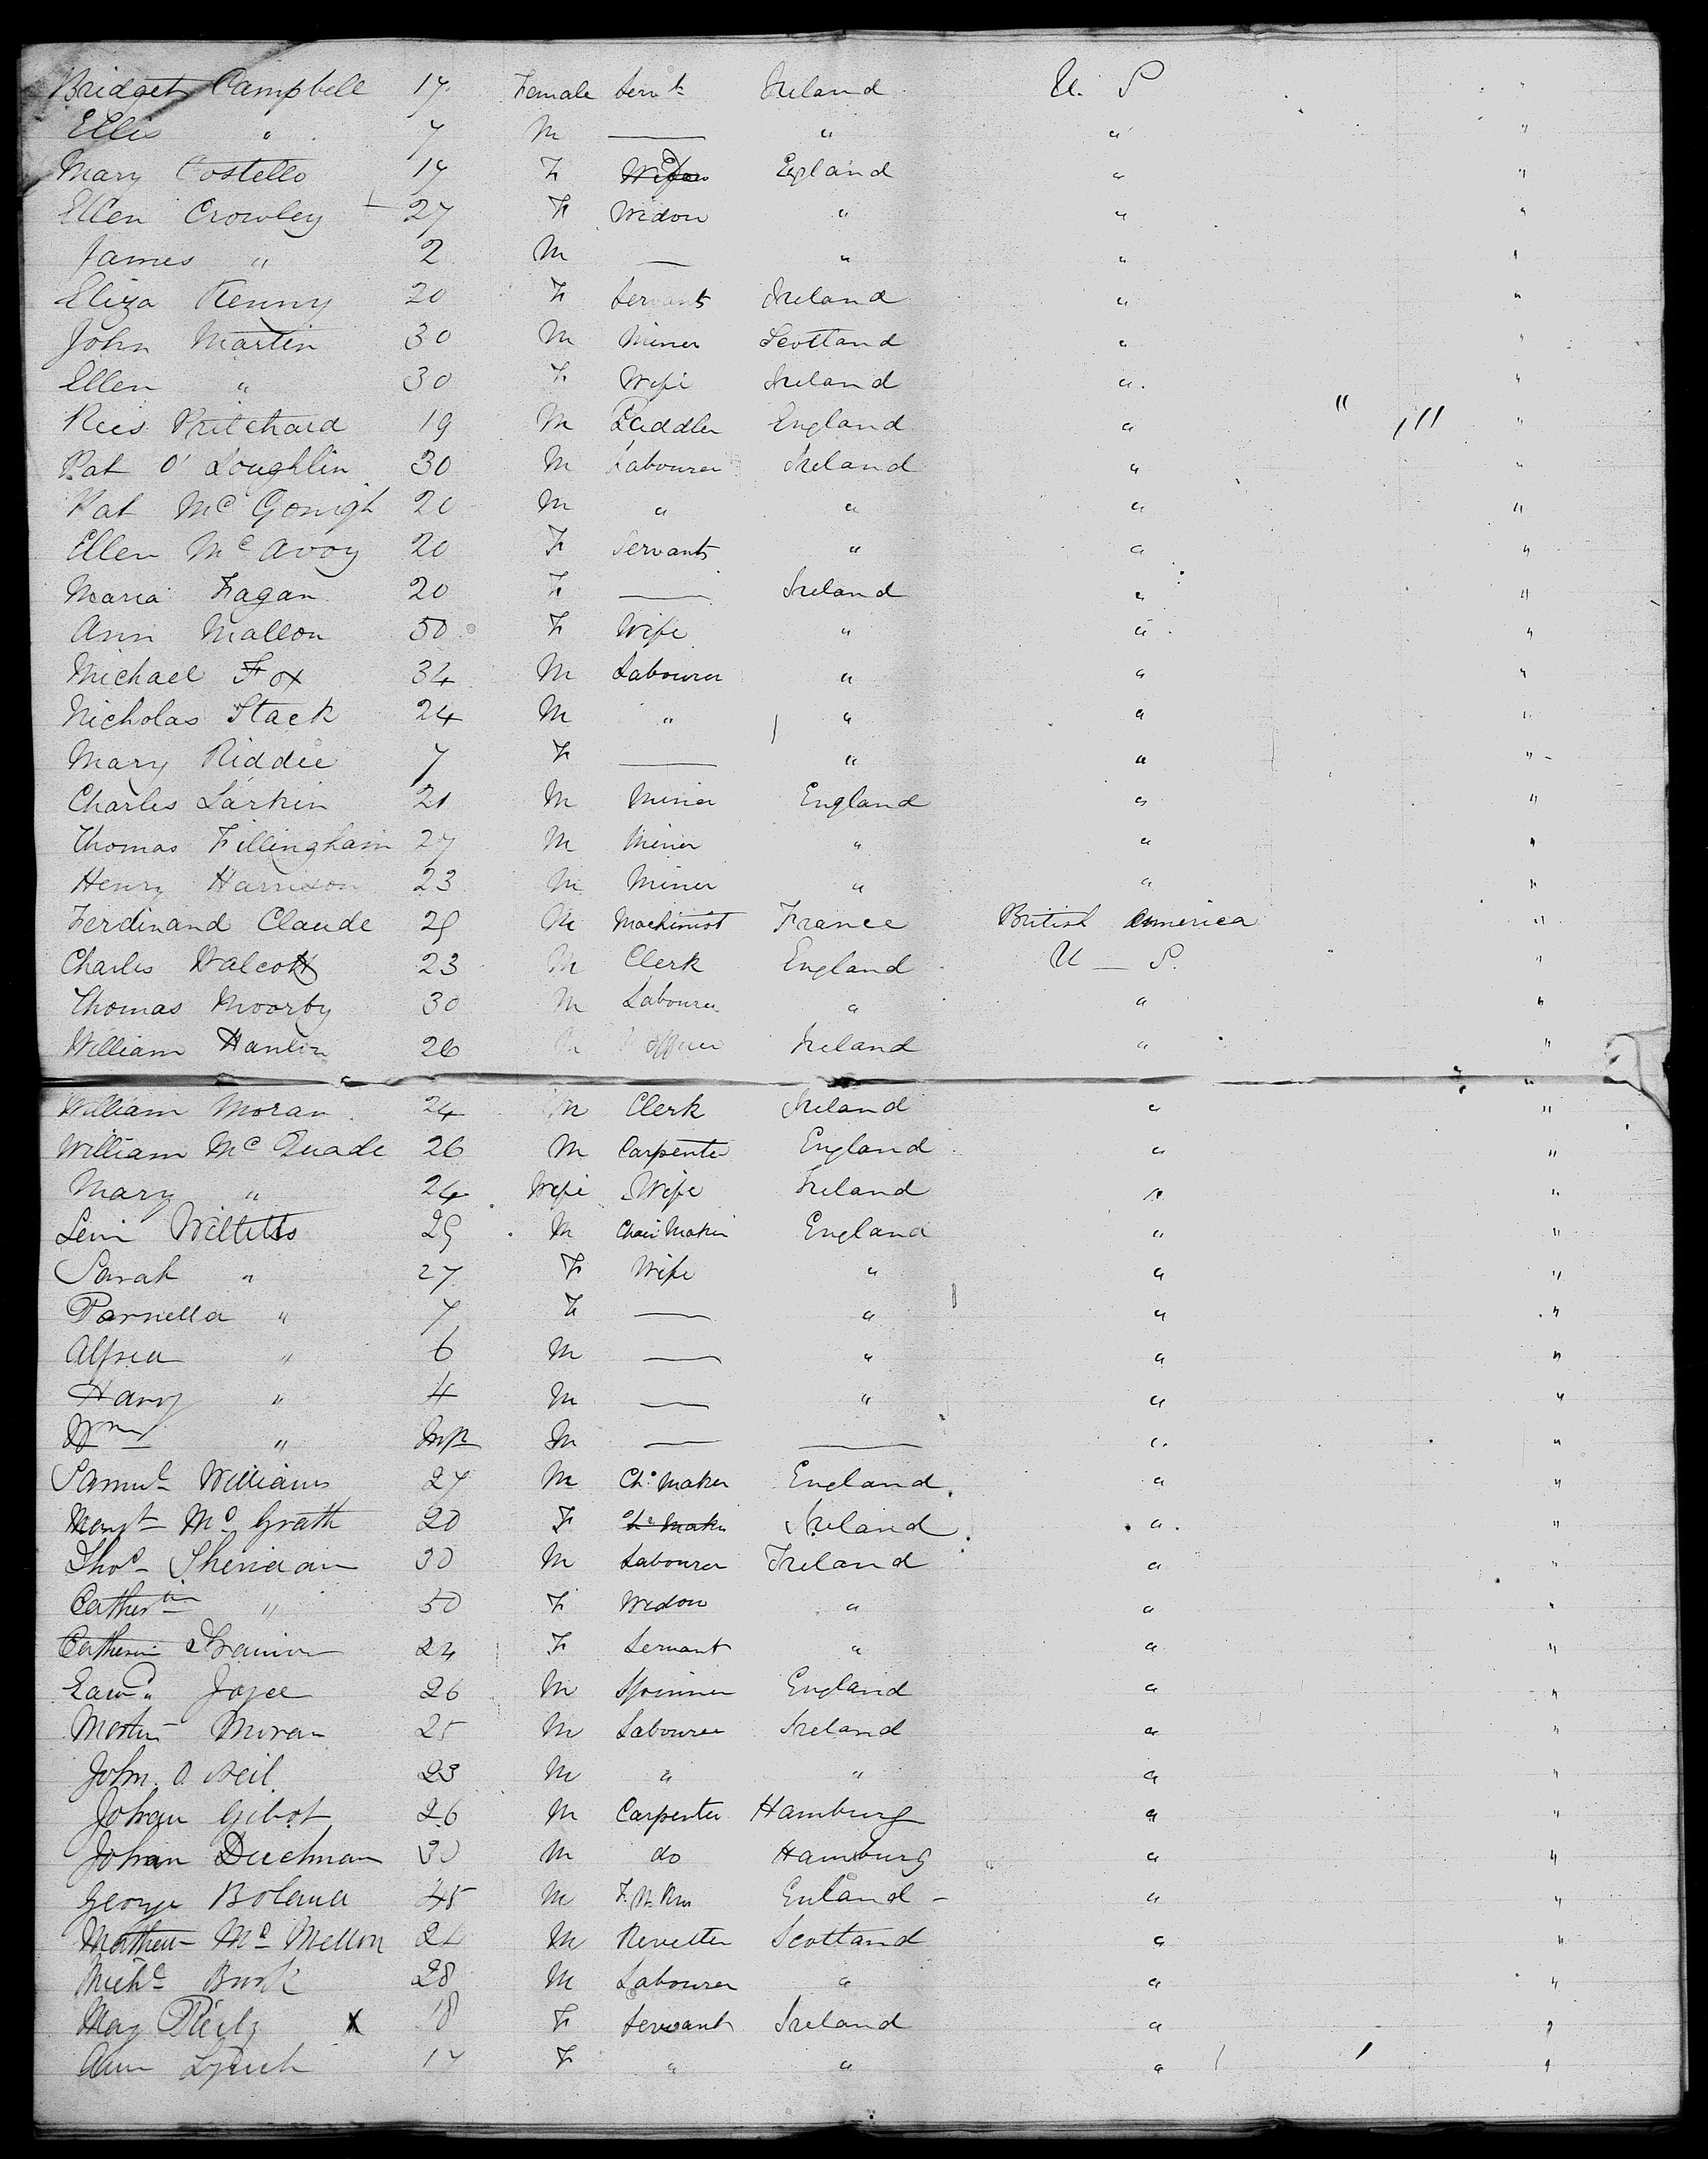 Bridget Campbell 17 Female Servt Ireland U. S "
Ellis " 7 M — " " "
Mary Costello 17 F England " "
Ellen Crowley 27 F Widow " " "
James " 2 M — " " "
Eliza Kenny 20 F Servants Ireland " "
John Martin 30 M Miner Scotland " "
Ellen " 30 F Wife Ireland " "
Rees Pritchard 19 M Puddler England " " "
Pat O' Loughlin 30 M Labourer Ireland " "
Pat Mc Gonigh 20 M " " " "
Ellen Mc Avoy 20 F Servants " " "
Maria Fagan 20 F — Ireland " "
Ann Mallon 50 F Wife " " "
Michael Fox 34 M Labourer " " "
Nicholas Stack 24 M " " " "
Mary Riddie 7 F — " " "
Charles Larkin 21 M Miner England " "
Thomas Fillingham 27 M Miner " " "
Henry Harrison 23 M Miner " " "
Ferdinand Claude 29 M Machinist France British America "
Charles Walcott 23 M Clerk England U — S. "
Thomas Moorby 30 M Labourer " " "
William Hanlin 26 M Ireland " "
William Moran 24 M Clerk Ireland " "
William Mc Quade 26 M Carpenter England " "
Mary " 24 Wife Wife Ireland " "
Levi Willetts 29 M Chair Maker England " "
Sarah " 27 F Wife " " "
Parnella " 7 F — " " "
Alfred " 6 M — " " "
Harry " 4 M — " " "
Wm " Inft M — — " "
Samul Williams 27 M Chr Maker England " "
Margt Mc Grath 20 F Chr Maker Ireland " "
Thos Sheridan 30 M Labourer Ireland " "
Catherin " 50 F Widow " " "
Catherin 24 F Servant " " "
Edwd Joyce 26 M Spinner England " "
Martin Moran 25 M Labourer Ireland " "
John O Neil 23 M " " " "
Johan Gibot 26 M Carpenter Hamburg " "
Johan Duchman 30 M do Hamburg " "
George Boland 45 M Enland " "
Mathew Mc Mellon 24 M Revetter Scotland " "
Michl Burk 28 M Labourer " " "
Mary Reily X 18 F Servant Ireland " "
Ann Lynch 17 F " " " "